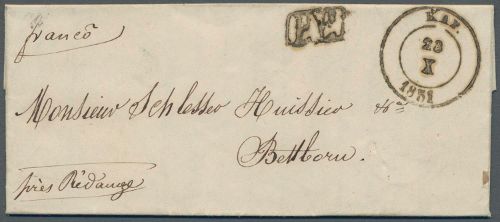 francò
P.P.
23
X
1851
Monsieur Schlesser Huissier &a
Bettborn.
près Rédange